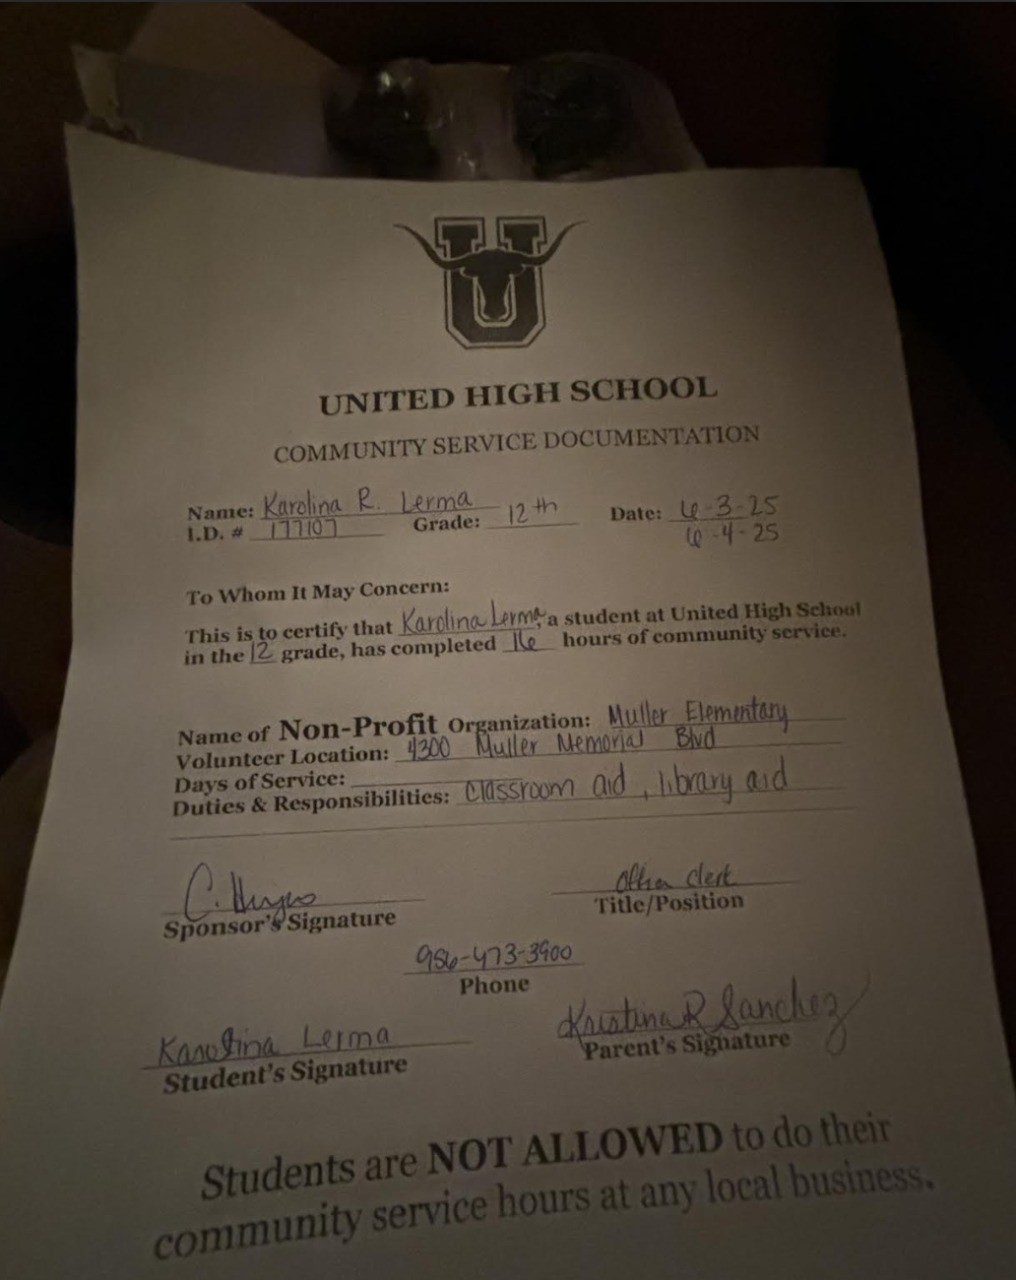 U
UNITED HIGH SCHOOL
COMMUNITY SERVICE DOCUMENTATION
Name: Karolina R. Lerma Grade: 12th Date: 6-3-25
I.D. # 177107 6-4-25
To Whom It May Concern:
This is to certify that Karolina Lerma, a student at United High School
in the 12 grade, has completed 16 hours of community service.
Name of Non-Profit Organization: Muller Elementary
Volunteer Location: 4300 Muller Memorial Blvd
Days of Service:
Duties & Responsibilities: Classroom aid, library aid
C.
Sponsor's Signature
clerk
Title/Position
956-473-3900
Phone
Karolina Lerma
Student's Signature
Kristina R Sanchez
Parent's Signature
Students are NOT ALLOWED to do their
community service hours at any local business.